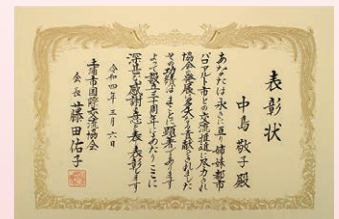 表彰状
中島敬子殿
あなたは永きに亘り姉妹都市
パロアルト市との交流推進に尽力され
協会発展に多大な貢献をされました
その功績はまことに顕著であります
よって設立三十周年にあたりここに
深甚なる感謝の意を表し表彰します
令和四年三月六日
土浦市国際交流協会
会長 藤田佑子